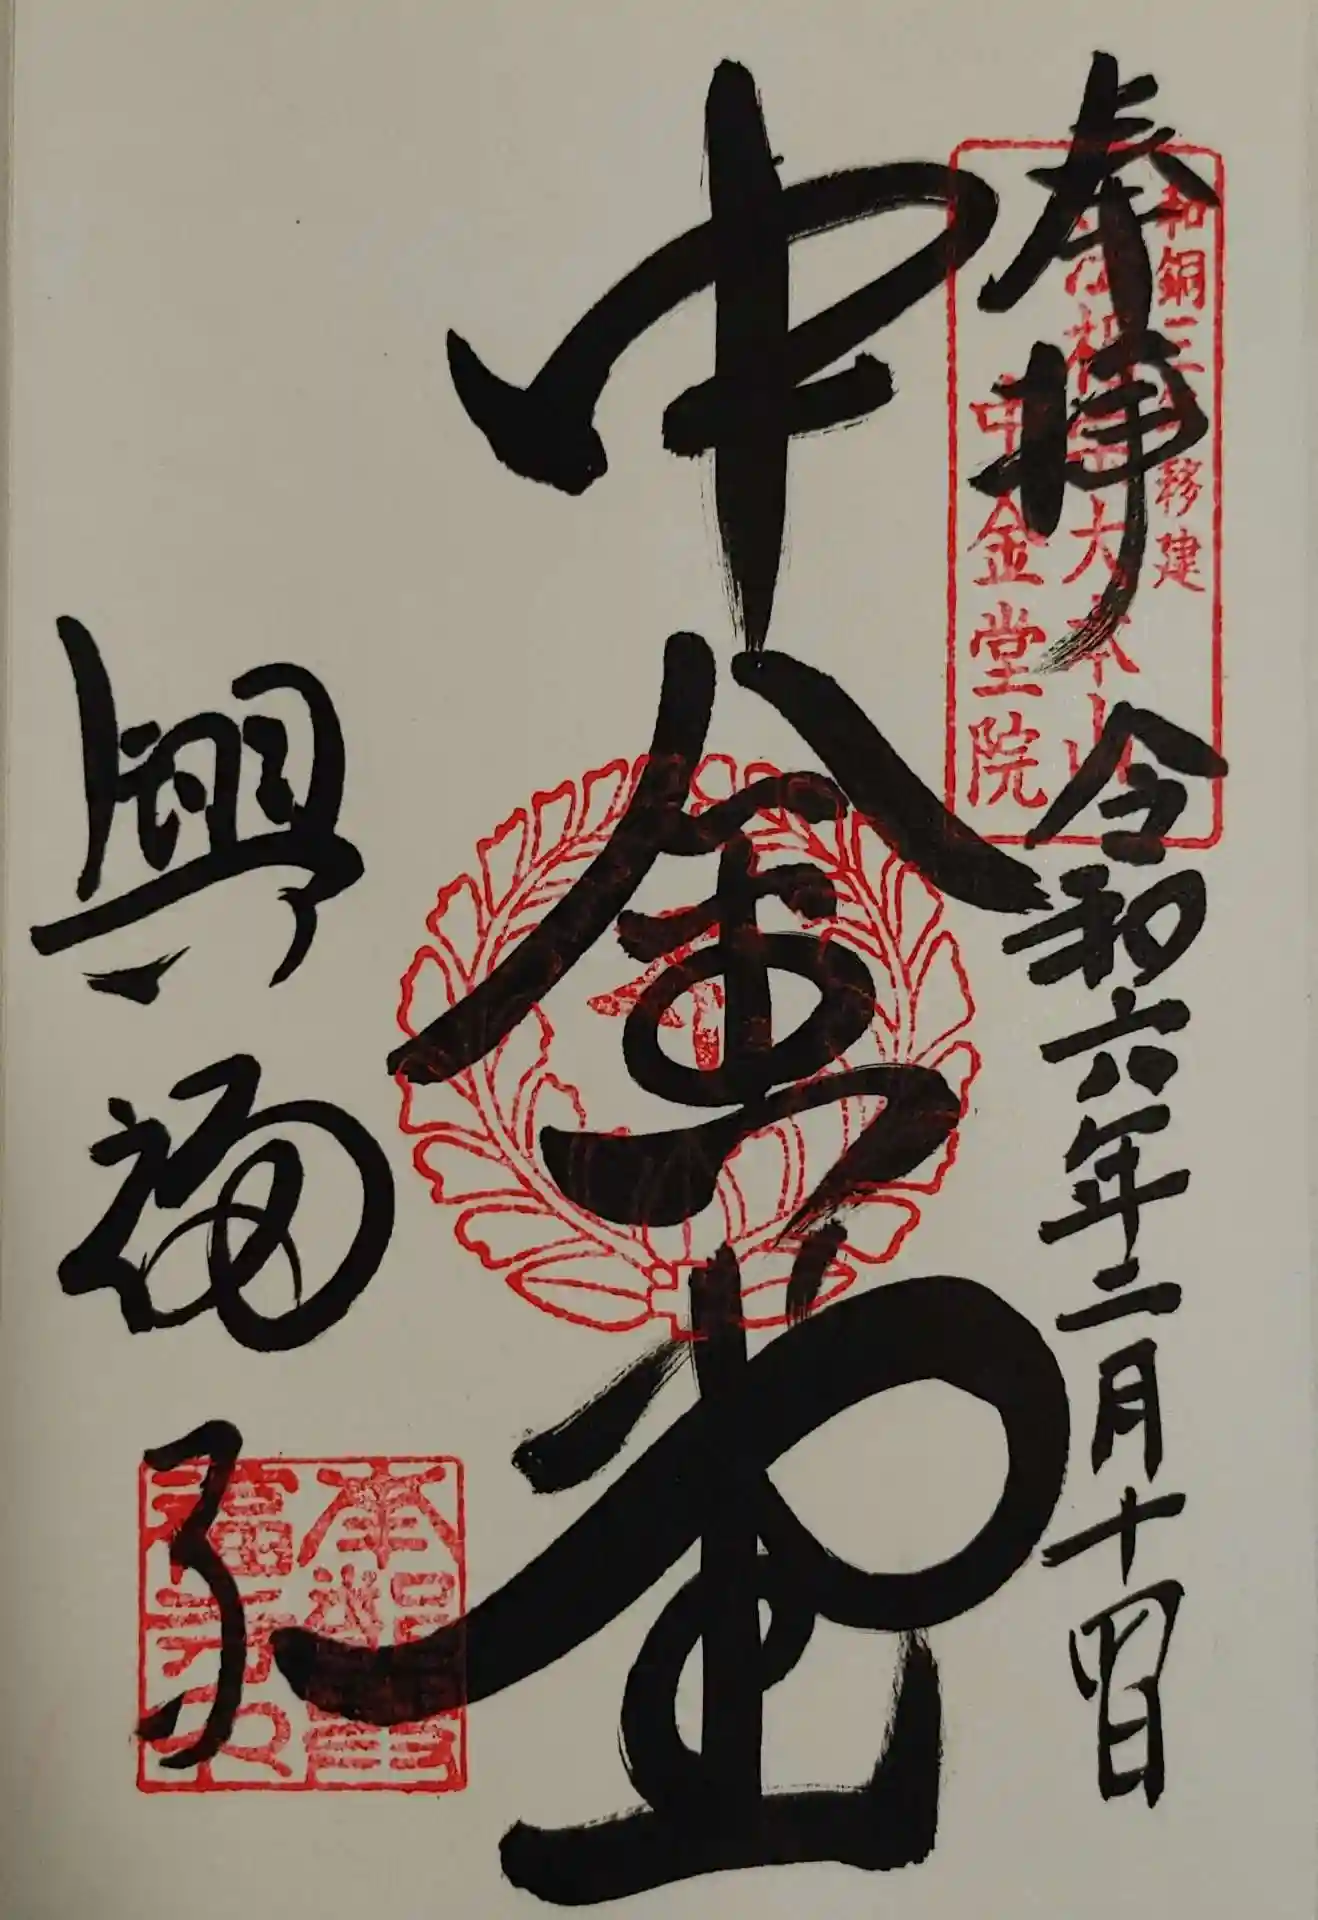 奉拝 令和六年二月十四日
和銅三 移建
法相 大本山
中金堂院
中金堂
興福寺